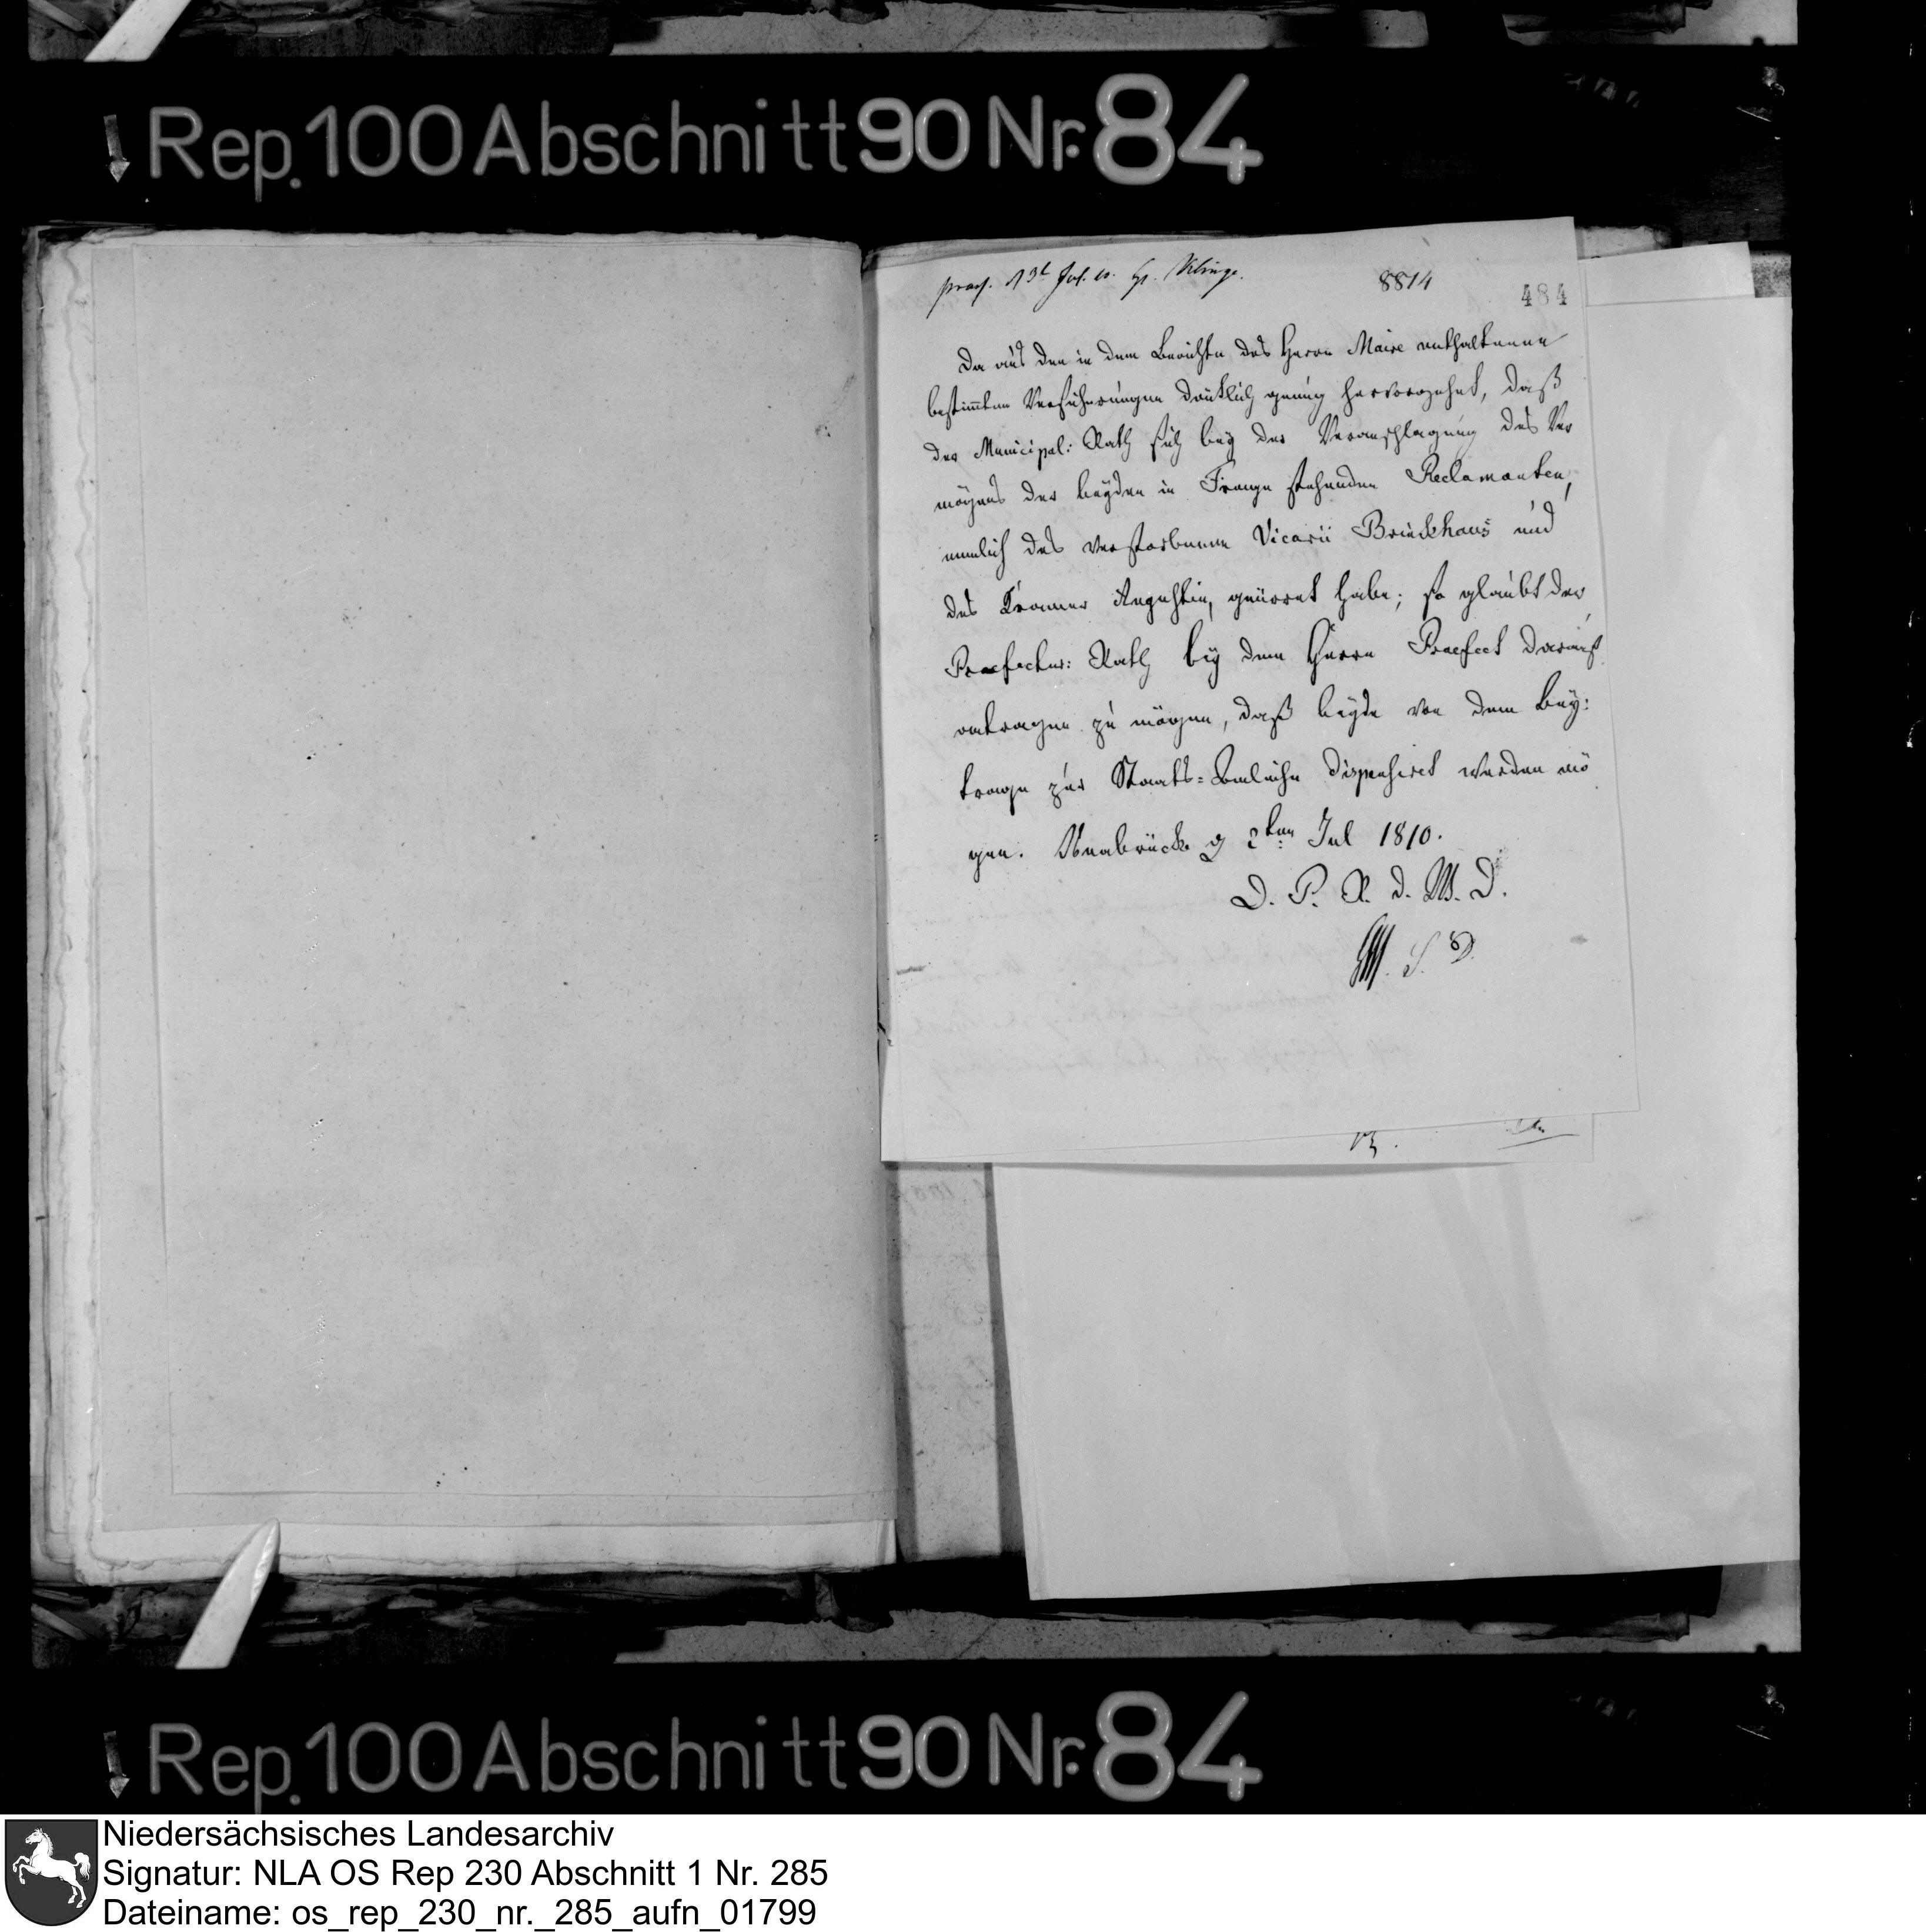 Rep. 100 Abschnitt 90 Nr. 84
praes. d 3t Jul. 10. Hr. Klinge.
8814
484
Da aus den in dem Berichte des Herrn Maire enthaltenen
bestimmten Versicherungen deutlich genug hervorgehet, daß
der Municipal: Rath sich bey der Veranschlagung des Ver
mögens der beyden in Frage stehenden Reclamanten,
nemlich des verstorbenen Vicarii Brickhaus und
des Kramer Angehtin, geirret habe; so glaubt der
Praefectur: Rath bey dem Herrn Praefect darauf
antragen zu mögen, daß beyde von dem Bey:
trage zur Staats-Anleihe dispensiret werden mö
gen. Osnabrück d 2ten Jul 1810.
D. P. R. d. W. D.
Rep. 100 Abschnitt 90 Nr. 84
Niedersächsisches Landesarchiv
Signatur: NLA OS Rep 230 Abschnitt 1 Nr. 285
Dateiname: os_rep_230_nr._285_aufn_01799